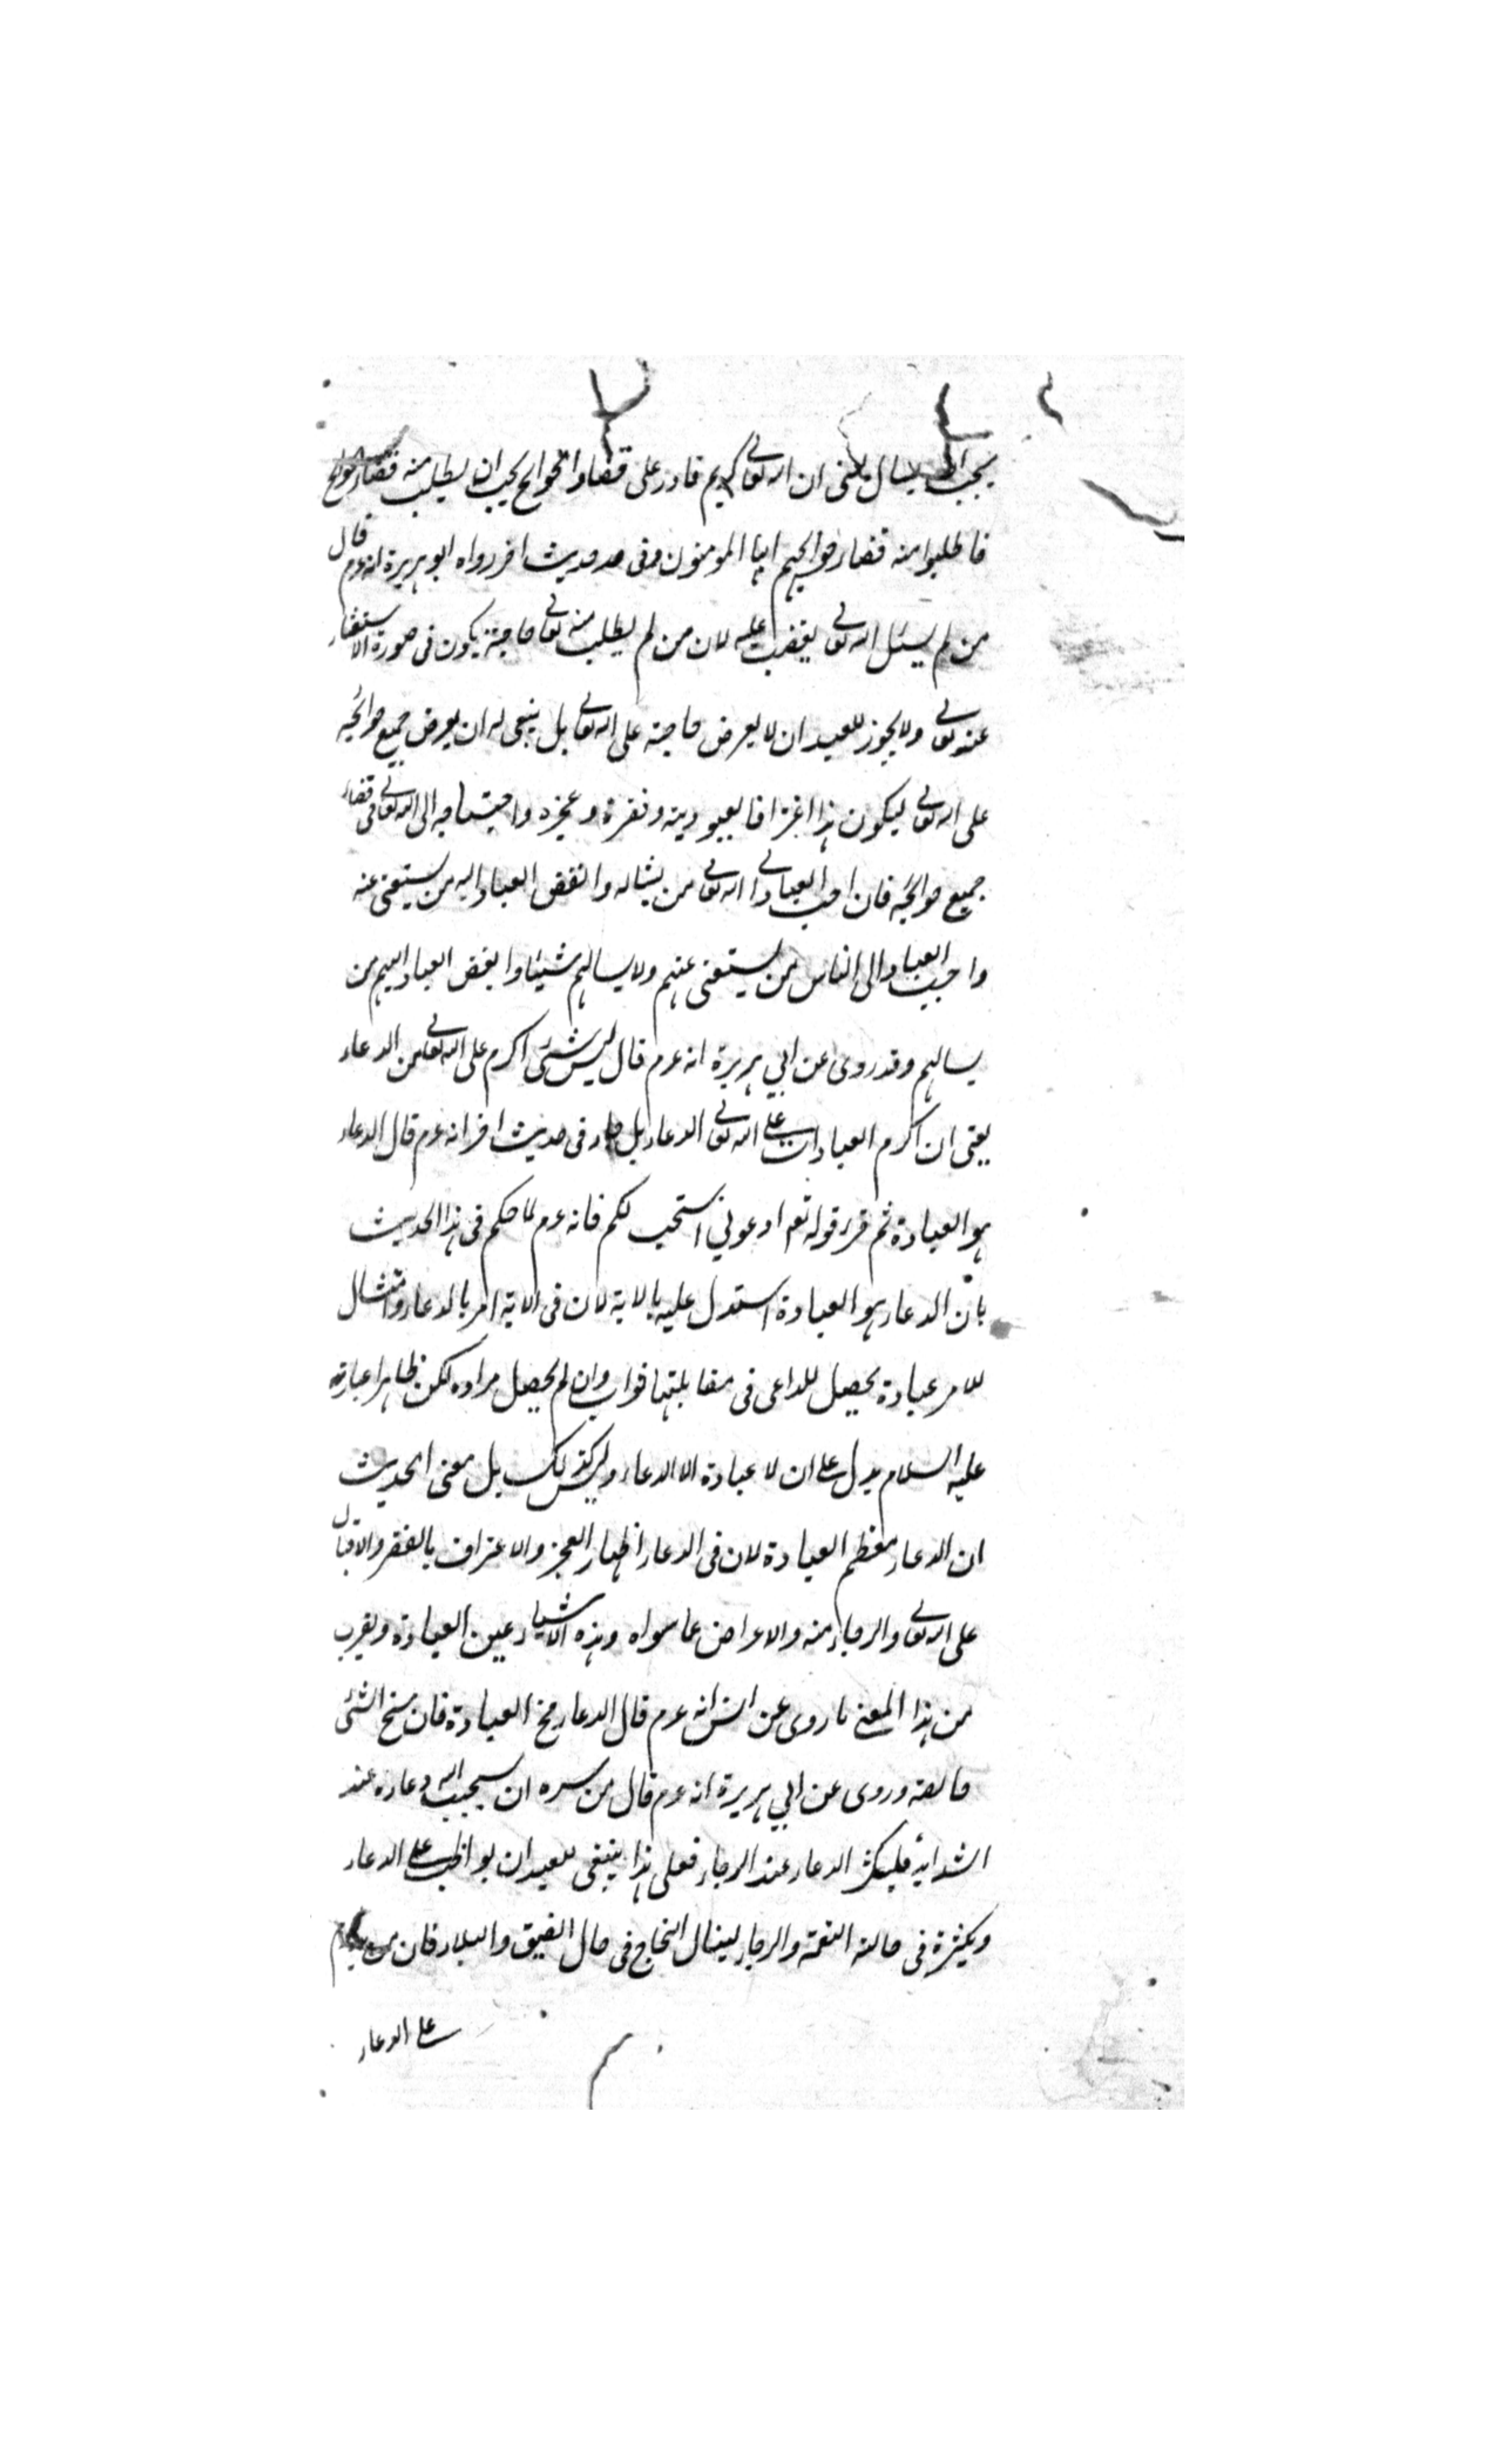 يحب ان يسال يعنى ان الله تعالى كريم قادر على قضاء الحوايج يحب ان يطلب منه قضاء حوايج
فاطلبوا منه قضاء حوايجهم ايها المومنون وفى حديث اخر رواه ابو هريرة انه عم قال
من لم يسئل الله تعالى يغضب عليه لان من لم يطلب منه تعالى حاجته يكون فى صورة الاستغناء
عنه تعالى ولا يجوز للعبد ان لا يعرض حاجته على الله تعالى بل ينبغى له ان يعرض جميع حوائجه
على الله تعالى ليكون هذا اعترافا بعبوديته وفقره وعجزه واحتياجه الى الله تعالى فى قضاء
جميع حوائجه فان احب العباد الى الله تعالى من يساله وابغض العباد اليه من يستغنى عنه
واحب العباد الى الناس من يستغنى عنهم ولا يسالهم شيئا وابغض العباد اليهم من
يسالهم وقد روى عن ابي هريرة انه عم قال ليس شئ اكرم على الله تعالى من الدعاء
يعنى ان اكرم العبادات على الله تعالى الدعاء بل جاء فى حديث اخر انه عم قال الدعاء
هو العبادة ثم قرء قوله تعم ادعوني استجب لكم فانه عم لما حكم فى هذا الحديث
بان الدعاء هو العبادة استدل عليه بالاية لان فى الاية امر بالدعاء وامتثال
للامر عبادة يحصل للداعى فى مقابلتها ثواب وان لم يحصل مراده لكن ظاهرا عبارته
عليه السلام يدل على ان لا عبادة الا الدعاء وليس كذلك بل معنى الحديث
ان الدعاء معظم العبادة لان فى الدعاء اظهار العجز والاعتراف بالفقر والاقبال
على الله تعالى والرجاء منه والاعراض عما سواه وهذه الاشياء عين العبادة ويقرب
من هذا المعنى ما روى عن انس انه عم قال الدعاء مخ العبادة فان مخ الشئ
خالصه وروى عن ابي هريرة انه عم قال من سره ان يستجيب الله دعاءه عند
الشدايد فليكثر الدعاء عند الرخاء فعلى هذا ينبغى للعبد ان يواظب على الدعاء
ويكثره فى حالة النعمة والرخاء لينال النجاح فى حال الضيق والبلاء فان من
على الدعاء